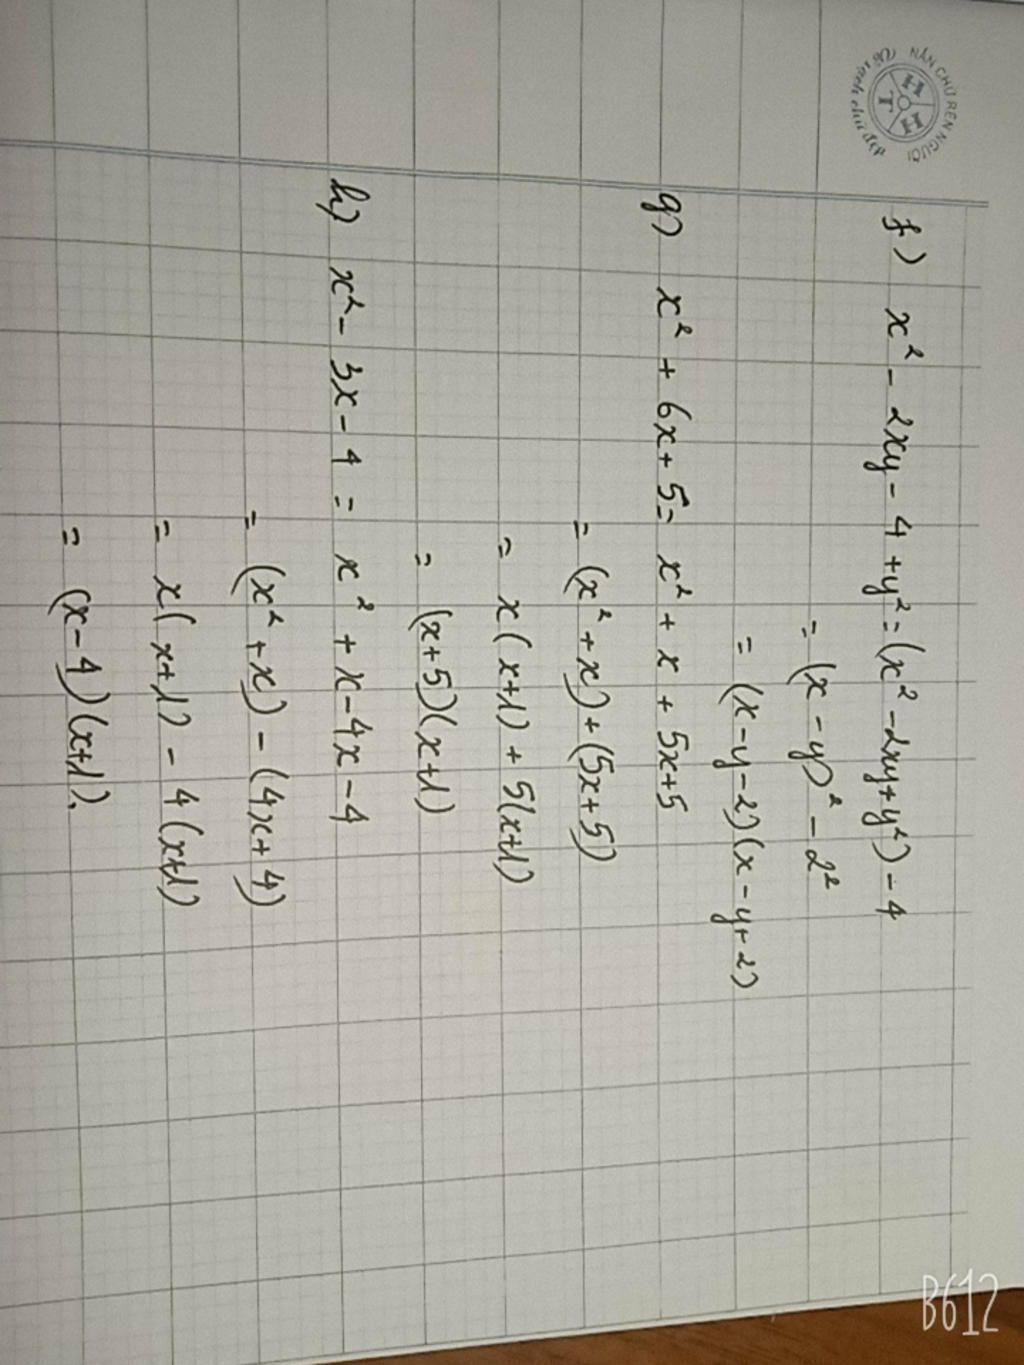 NẮN CHỮ RÈN NGƯỜI
H H T
f) x² - 2xy - 4 + y² = (x² - 2xy + y²) - 4
= (x - y)² - 2²
= (x - y - 2)(x - y + 2)
g) x² + 6x + 5 = x² + x + 5x + 5
= (x² + x) + (5x + 5)
= x(x+1) + 5(x+1)
= (x+5)(x+1)
h) x² - 3x - 4 = x² + x - 4x - 4
= (x² + x) - (4x + 4)
= x(x+1) - 4(x+1)
= (x-4)(x+1).
B612